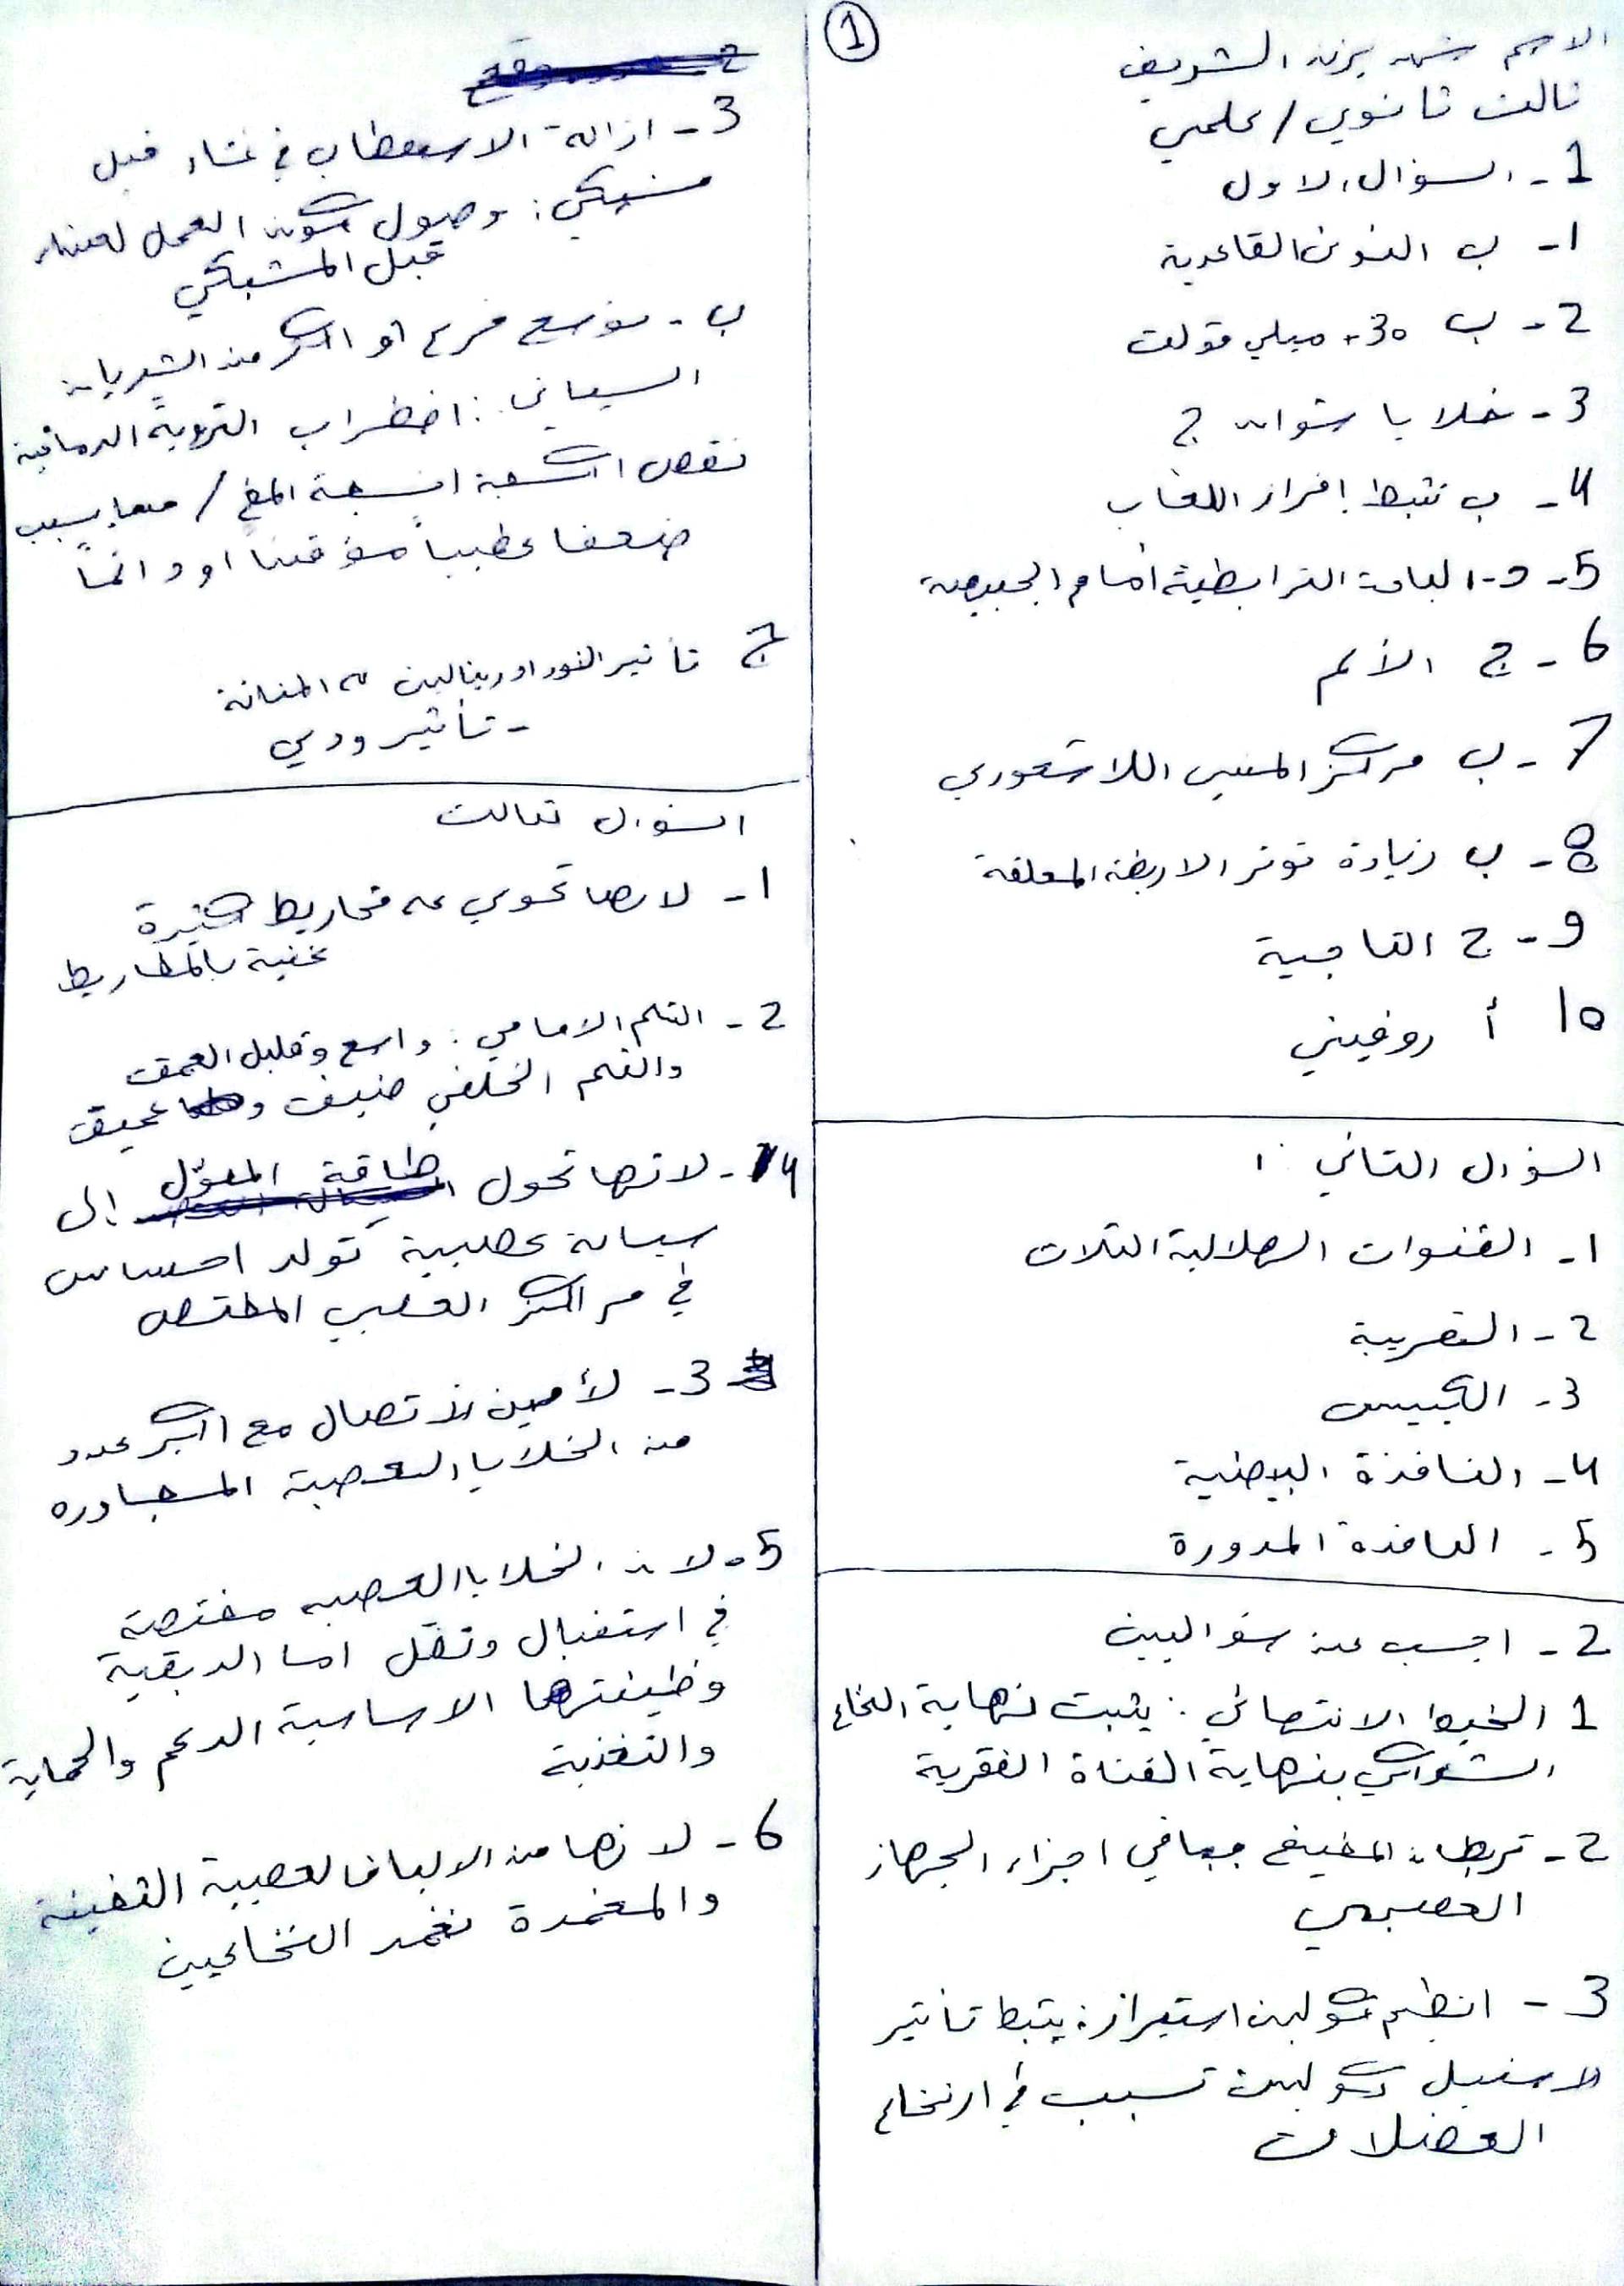 1
الاسم شهد يزن الشريف
ثالث ثانوي / علمي
1 - السؤال الاول
1- ب النوى القاعدية
2 - ب 30- ميلي فولت
3 - خلايا شوان ج
4 - ب تثبط إفراز اللعاب
5 - د - الباحة الترابطية أمام الجبهية
6 - ج الألم
7 - ب مركز المعي اللاشعوري
8 - ب زيادة توتر الاربطة المعلقة
9 - ج التاجية
10 أ روفيني
السؤال الثاني :
1- القنوات الهلالية الثلاث
2 - القريبة
3 - الكييس
4 - النافذة البيضية
5 - النافذة المدورة
2 - اجب عن سؤالين
1 الخيط الانتهائي : يثبت نهاية النخاع
الشوكي بنهاية القناة الفقرية
2 - تربطان المخيخ بباقي اجزاء الجهاز
العصبي
3 - انظيم كولين استيراز : يثبط تأثير
لاستيل كولين تسبب في ارتخاء
العضلات
3 - ازالة الاستقطاب في غشاء قبل
مشبكي : وصول كمون العمل لغشاء
قبل المشبكي
ب - توسع فرع او اكثر من الشريان
السباتي : اضطراب التروية الدماغية
نقص اكسجة انسجة المخ / مما يسبب
ضعفا عصبياً مؤقتاً او دائماً
ج تأثير النور ادرينالين على المثانة
- تأثير ودي
السؤال ثالث
1 - لانها تحوي على مخاريط كثيرة
غنية بالمخاريط
2 - الثلم الامامي : واسع وقليل العمق
والثلم الخلفي ضيق و عميق
4 - لانها تحول طاقة المنبه إلى
سيالة عصبية تولد احساس
في مراكز العصبي المختص
3 - لأمين لاتصال مع اكبر عدد
من الخلايا العصبية المجاوره
5 - لان الخلايا العصبيه مختصة
في استقبال ونقل اما الدبقية
وظيفتها الاساسية الدعم والحماية
والتغذية
6 - لانها من الالياف لعصبية الثخينة
والمغمدة بغمد النخاعيين